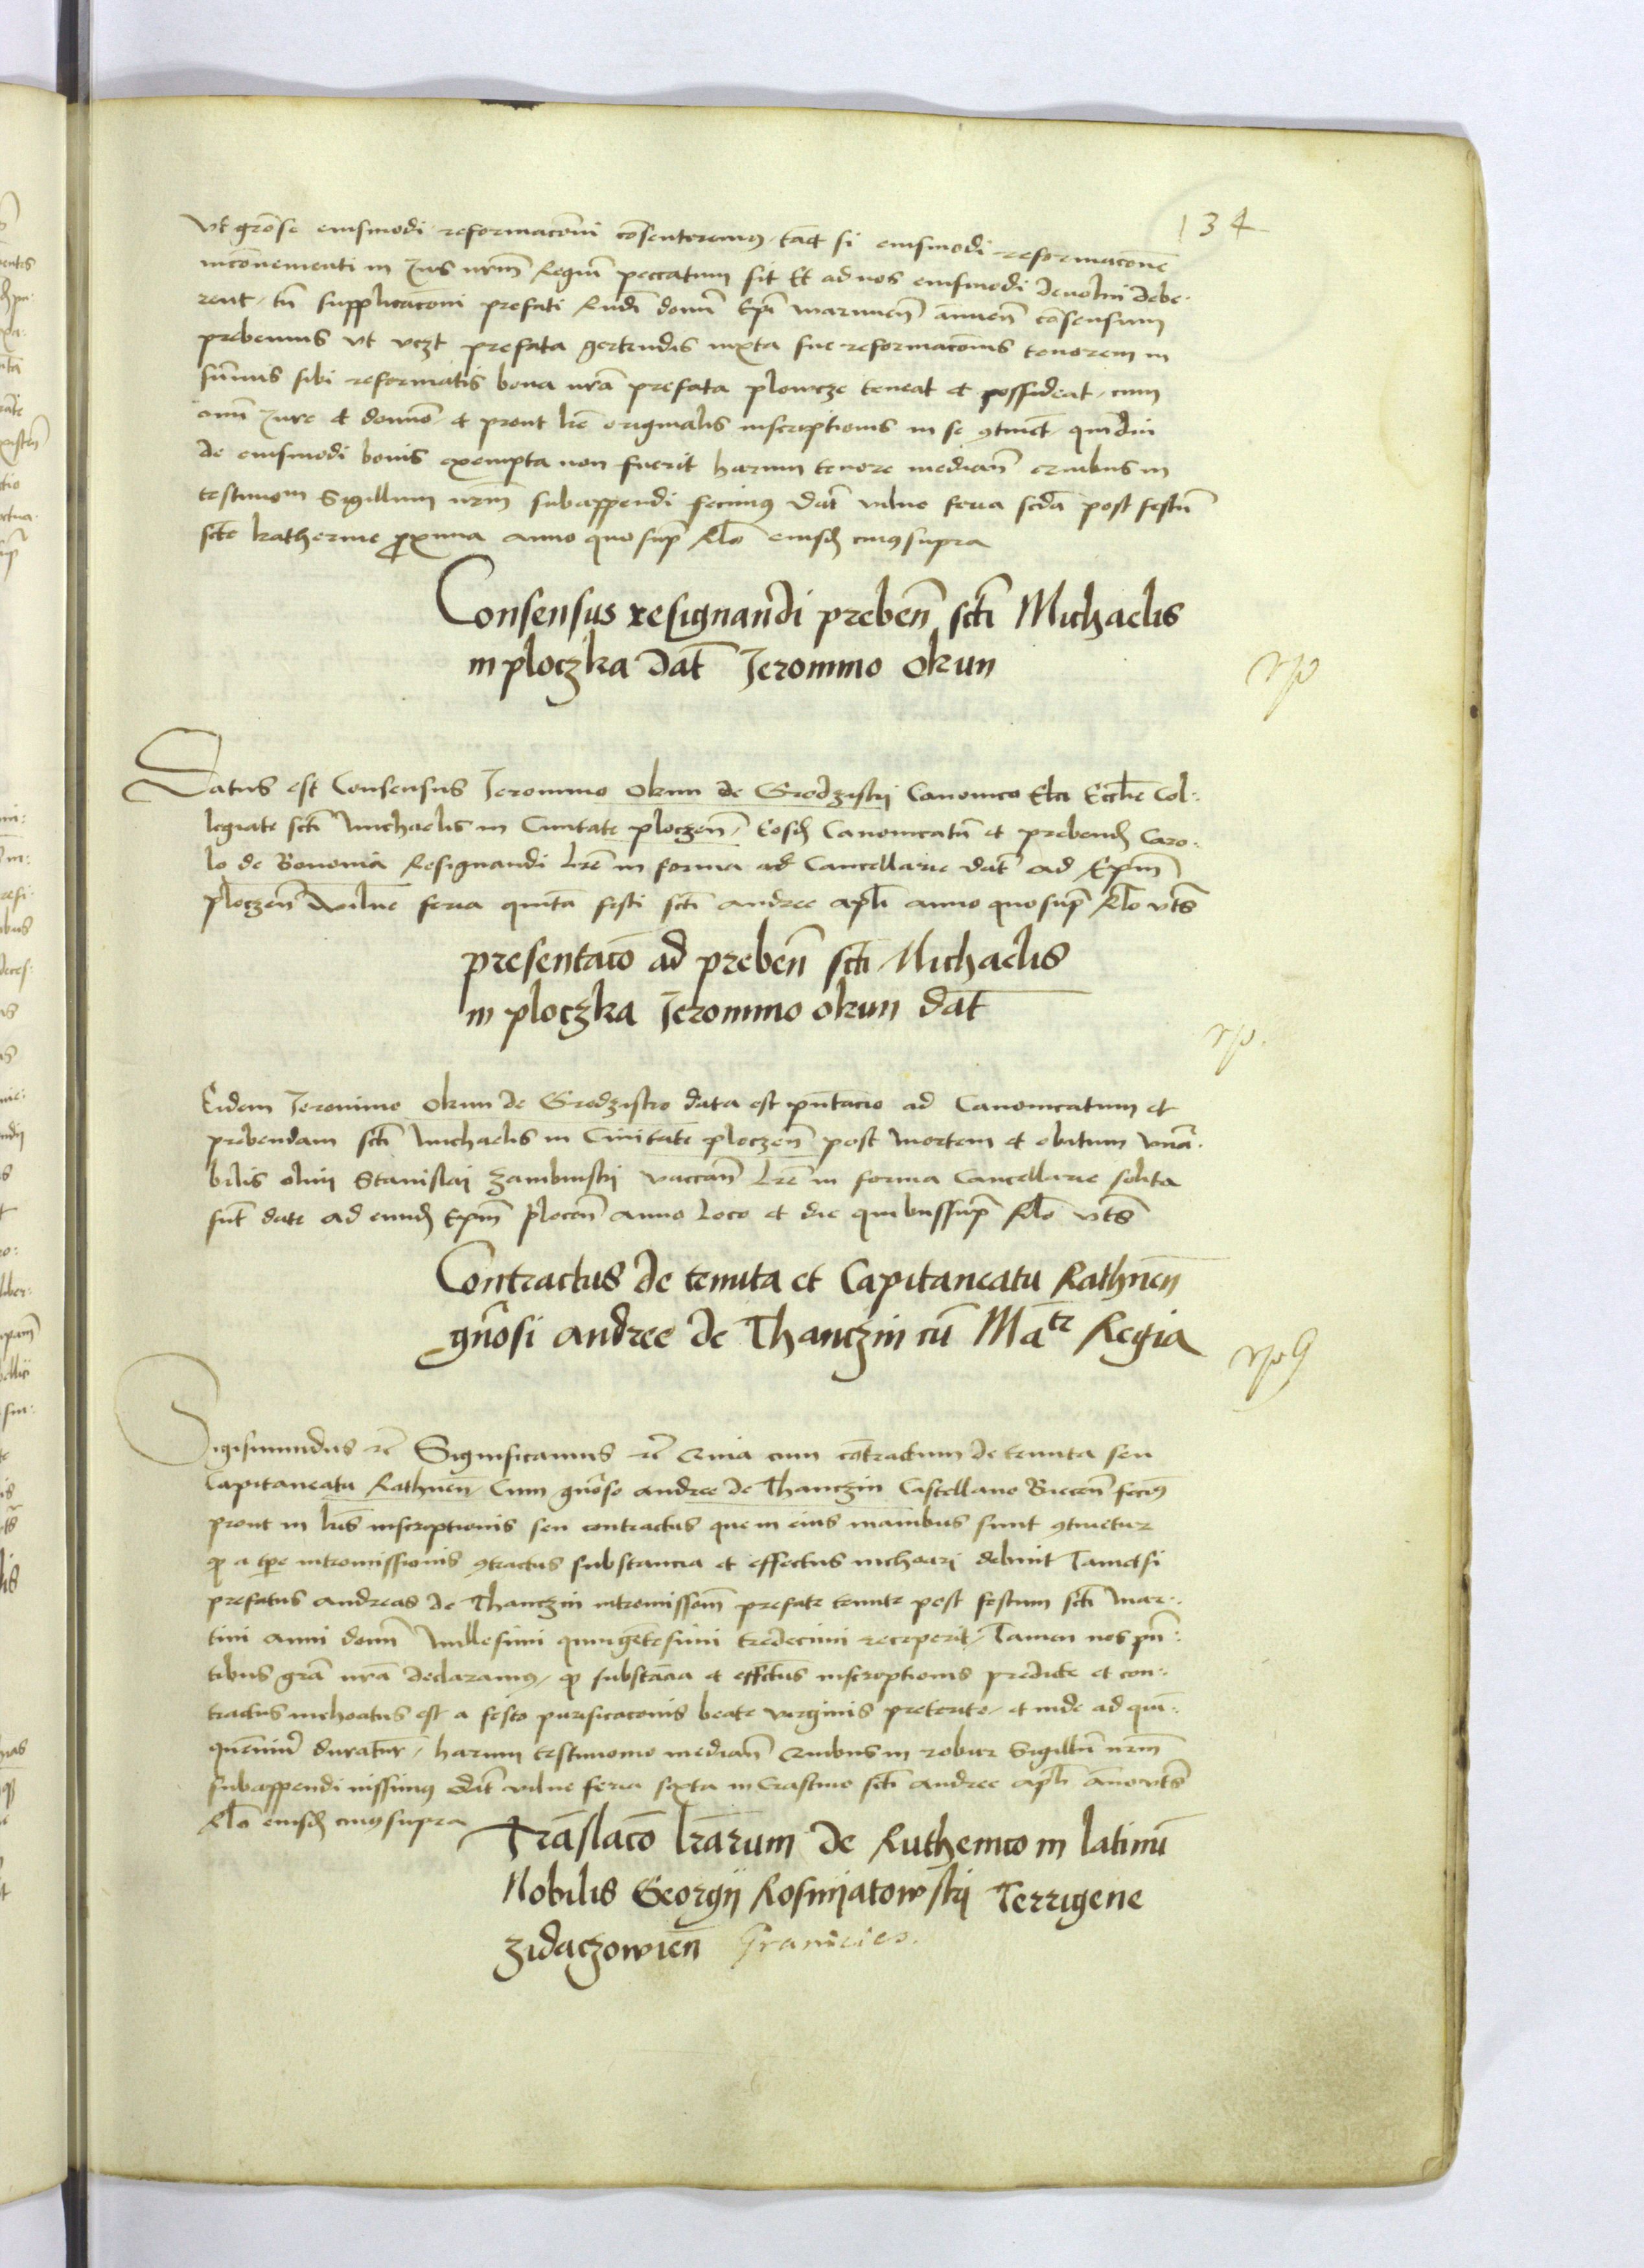 134
Vt gratiose eiusmodi reformacioni consenteremus, tametsi eiusmodi reformacione
inconvenienti in Jus nrm̄ Regiū peccatum sit Et ad nos eiusmodi devolui debe-
rent, tn̄ supplicacioni prefati Rndi domī Epī warmien̄ annuen̄ cōsensum
prebemus vt vczt prefata gertrudis iuxta sue reformacionis tenorem in
sum̄is sibi reformatis bona nrā prefata plowcze teneat et possideat, cum
omī Jure et domīo, et prout lrē originalis inscriptionis in se ɔtinet, qm̄diu
de eiusmodi bonis exempta non fuerit harum tenore median̄ quibus in
testimom Sigillum nrm̄ subappendi fecimus Dat̄ vilne feria scdā post festū
scte katherine proxima anno quo sup̄ Rlō eiusd cuius supra
Consensus resignandi preben̄ scti Michaelis
in ploczka dat̄ Jeronimo okun
rp
Datus est Consensus Jeronimo Okun de Grodzistij Canonico Eccl̄ie Col-
legiate scti Michaelis in Ciuitate ploczen̄, Eosd Canonicatū et prebend Caro-
lo de Bononia Resignandi Lrē in forma ad Cancellarie dat̄ ad Epm̄
ploczen̄ Vilne feria quinta festi scti andree apl̄i anno quo sup̄ Rlō vts̄
presentacō ad preben̄ scti Michaelis
in ploczka Jeronimo okun dat̄
rp.
Eidem Jeronimo Okun de Grodzisko data est pn̄tacio ad Canonicatum et
prebendam scti Michaelis in Ciuitate ploczen̄ post mortem et obitum venera-
bilis olim Stanislai Zambrustij vaccan̄ Lrē in forma Cancellarie solita
sunt date ad eund Epm̄ plocen̄ anno loco et die quibus sup̄ Rlō vts̄
Contractus de tenuta et Capitaneatu Rathnen̄
gn̄osi andree de Thanczin cū Matē Regia
rp
Sigismundus rc̄ Significamus rc̄ Quia cum cōtractum de tenuta seu
Capitaneatu Rathnen̄, Cum gn̄oso andree de Thanczin Castellano Biecen̄ fecimus
prout in lris inscriptionis seu contractus que in eius manibus sunt ɔtinetur
qd a tpe intromissionis ɔtractus substancia et effectus inchoari debuit Tametsi
prefatus andreas de Thanczin intromissiom prefate tenute post festum scti Mar-
tini anni domī Millesimi quingētesimi tredecimi receperit, Tamen nos pn̄-
tibus grā nrā declaramus, qd substācia et effectus inscriptionis predicte et con-
tractus inchoatus est a festo purificacionis beate virginis preterito, et inde ad quin-
quenniū duratur̄, harum testimonio median̄ Quibus in robur Sigillū nrm̄
subappendi iussimus Dat̄ vilne feria sexta in Crastino scti andree apl̄i anno vts̄
Rlō eiusd cuius supra
Trāslacō lrarum de Ruthenico in latinū
Nobilis Georgij Rosnijatowskij Terrigene
Zidaczowien̄ Granicies.